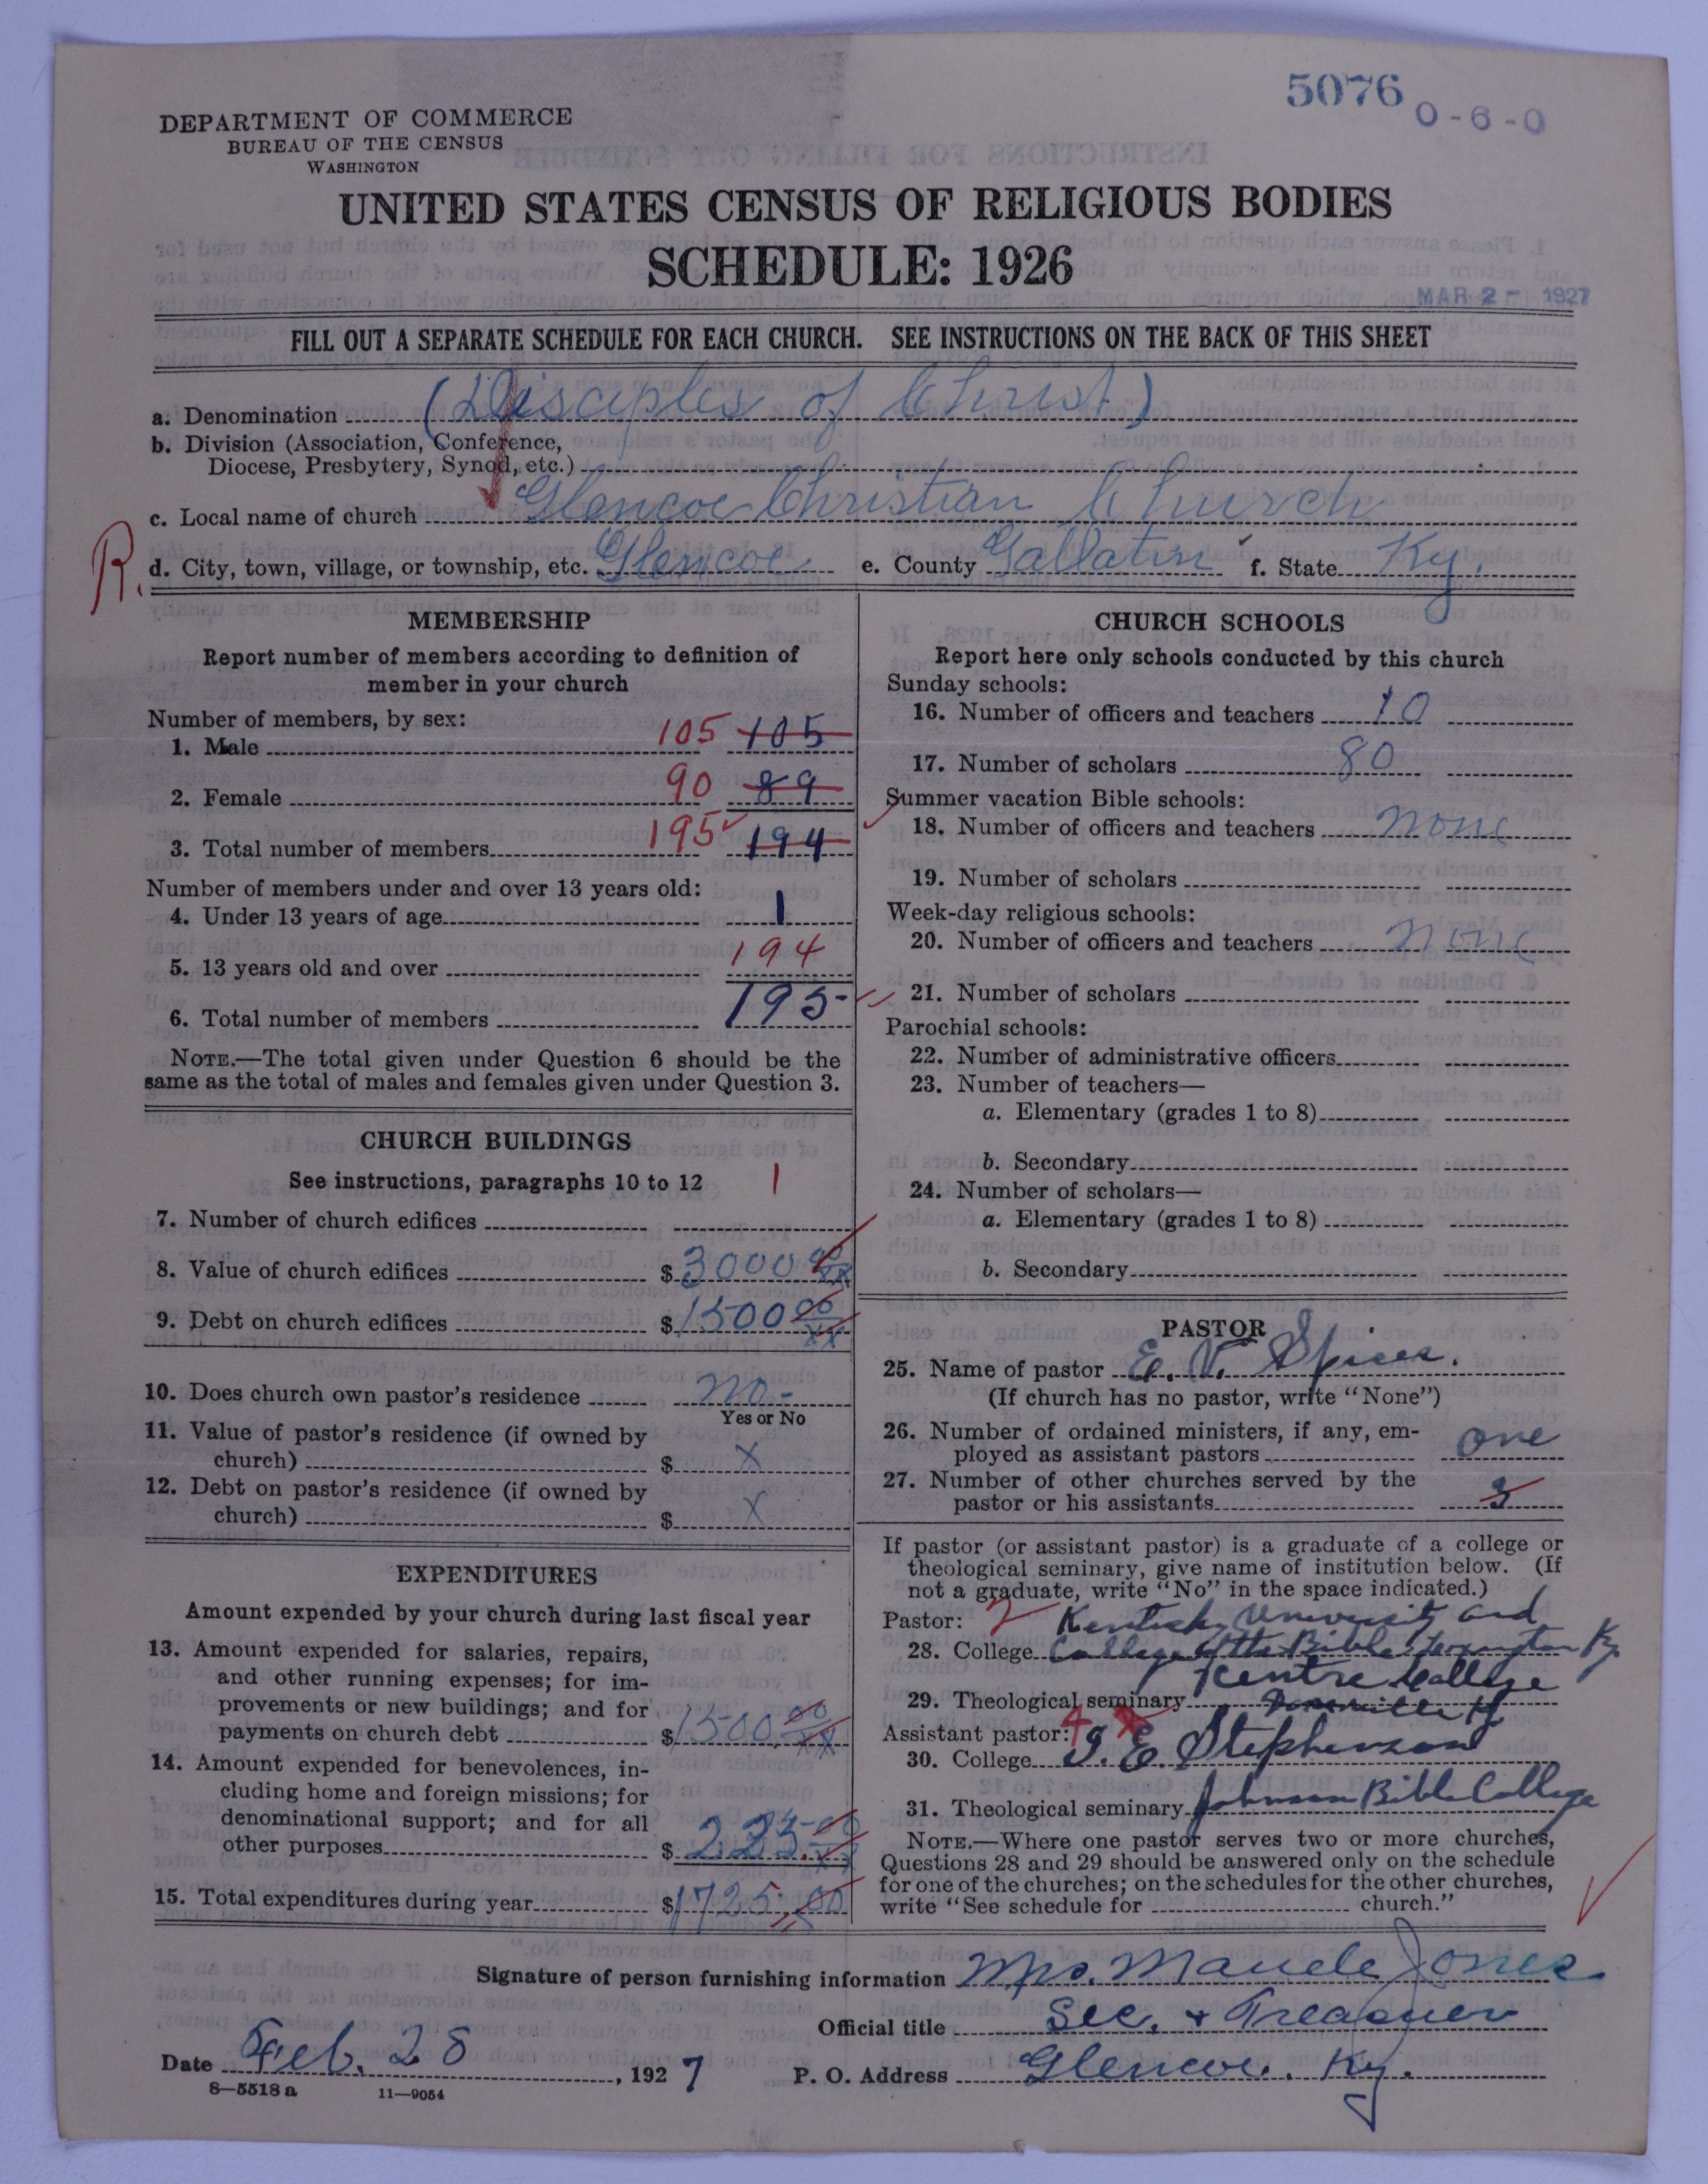 5076 0-6-0
DEPARTMENT OF COMMERCE
BUREAU OF THE CENSUS
WASHINGTON
UNITED STATES CENSUS OF RELIGIOUS BODIES
SCHEDULE: 1926
MAR 2 - 1927
FILL OUT A SEPARATE SCHEDULE FOR EACH CHURCH. SEE INSTRUCTIONS ON THE BACK OF THIS SHEET
a. Denomination (Disciples of Christ)
b. Division (Association, Conference,
Diocese, Presbytery, Synod, etc.)
c. Local name of church Glencoe Christian Church
R. d. City, town, village, or township, etc. Glencoe e. County Gallatin f. State Ky.
MEMBERSHIP
Report number of members according to definition of
member in your church
Number of members, by sex:
1. Male 105 105
2. Female 90 89
3. Total number of members 195 194
Number of members under and over 13 years old:
4. Under 13 years of age 1
5. 13 years old and over 194
6. Total number of members 195-
NOTE.—The total given under Question 6 should be the
same as the total of males and females given under Question 3.
CHURCH BUILDINGS
See instructions, paragraphs 10 to 12
7. Number of church edifices 1
8. Value of church edifices $3000 00/xx
9. Debt on church edifices $1500 00/xx
10. Does church own pastor's residence no-
Yes or No
11. Value of pastor's residence (if owned by
church) $ x
12. Debt on pastor's residence (if owned by
church) $ x
EXPENDITURES
Amount expended by your church during last fiscal year
13. Amount expended for salaries, repairs,
and other running expenses; for im-
provements or new buildings; and for
payments on church debt $1500.00/xx
14. Amount expended for benevolences, in-
cluding home and foreign missions; for
denominational support; and for all
other purposes $225.00/xx
15. Total expenditures during year $1725.00
CHURCH SCHOOLS
Report here only schools conducted by this church
Sunday schools:
16. Number of officers and teachers 10
17. Number of scholars 80
Summer vacation Bible schools:
18. Number of officers and teachers none
19. Number of scholars
Week-day religious schools:
20. Number of officers and teachers none
21. Number of scholars
Parochial schools:
22. Number of administrative officers
23. Number of teachers—
a. Elementary (grades 1 to 8)
b. Secondary
24. Number of scholars—
a. Elementary (grades 1 to 8)
b. Secondary
PASTOR
25. Name of pastor E. V. Spicer.
(If church has no pastor, write "None")
26. Number of ordained ministers, if any, em-
ployed as assistant pastors one
27. Number of other churches served by the
pastor or his assistants 3
If pastor (or assistant pastor) is a graduate of a college or
theological seminary, give name of institution below. (If
not a graduate, write "No" in the space indicated.)
Pastor: 2 Kentucky University and
28. College College of the Bible Lexington Ky
Centre College
29. Theological seminary Danville Ky
Assistant pastor: 4
30. College J. E. Stephenson
31. Theological seminary Johnson Bible College
NOTE.—Where one pastor serves two or more churches,
Questions 28 and 29 should be answered only on the schedule
for one of the churches; on the schedules for the other churches,
write "See schedule for church."
Signature of person furnishing information Mrs. Maude Jones
Official title Sec. + Treasurer
Date Feb. 28, 1927 P. O. Address Glencoe. Ky.
8—5518 a 11—9054